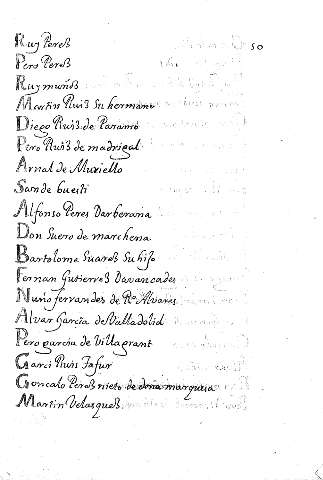 50
Ruy Peres
Pero Peres
Ruy muñoß
Martin Ruiß Su hermano
Diego Ruiß de Paramo
Pero Ruiß de madrigal
Arnal de Muriello
Alfonso Peres Darberana
Don Suero de marchena
Bartolome Suares Su hijo
Fernan Gutierreß Davancades
Nuño ferrandes de Rº Alvares
Alvar Garcia de Valladolid
Pero garcia de Villagrant
Garci Ruis Fafur
Goncalo Peres nieto de doña marquesa
Martin Velasqueß